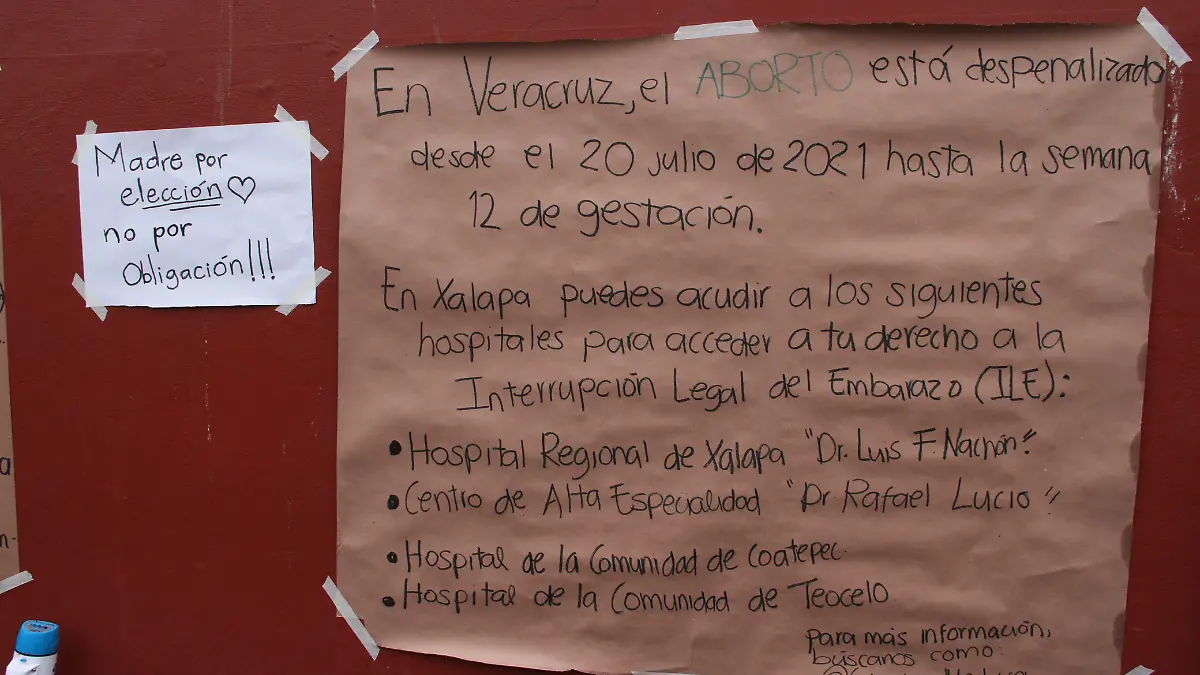 Madre por
elección♡
no por
Obligación!!!
En Veracruz, el ABORTO está despenalizado
desde el 20 julio de 2021 hasta la semana
12 de gestación.
En Xalapa puedes acudir a los siguientes
hospitales para acceder a tu derecho a la
Interrupción Legal del Embarazo (ILE):
• Hospital Regional de Xalapa "Dr. Luis F. Nachón."
• Centro de Alta Especialidad "Dr Rafael Lucio"
• Hospital de la Comunidad de Coatepec.
• Hospital de la Comunidad de Teocelo
para más información,
búscanos como: